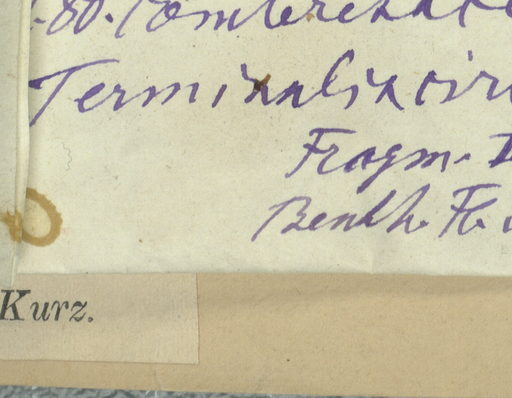 -80. Combretac
Terminalia cir
Fragm.
Benth. Fl.
Kurz.